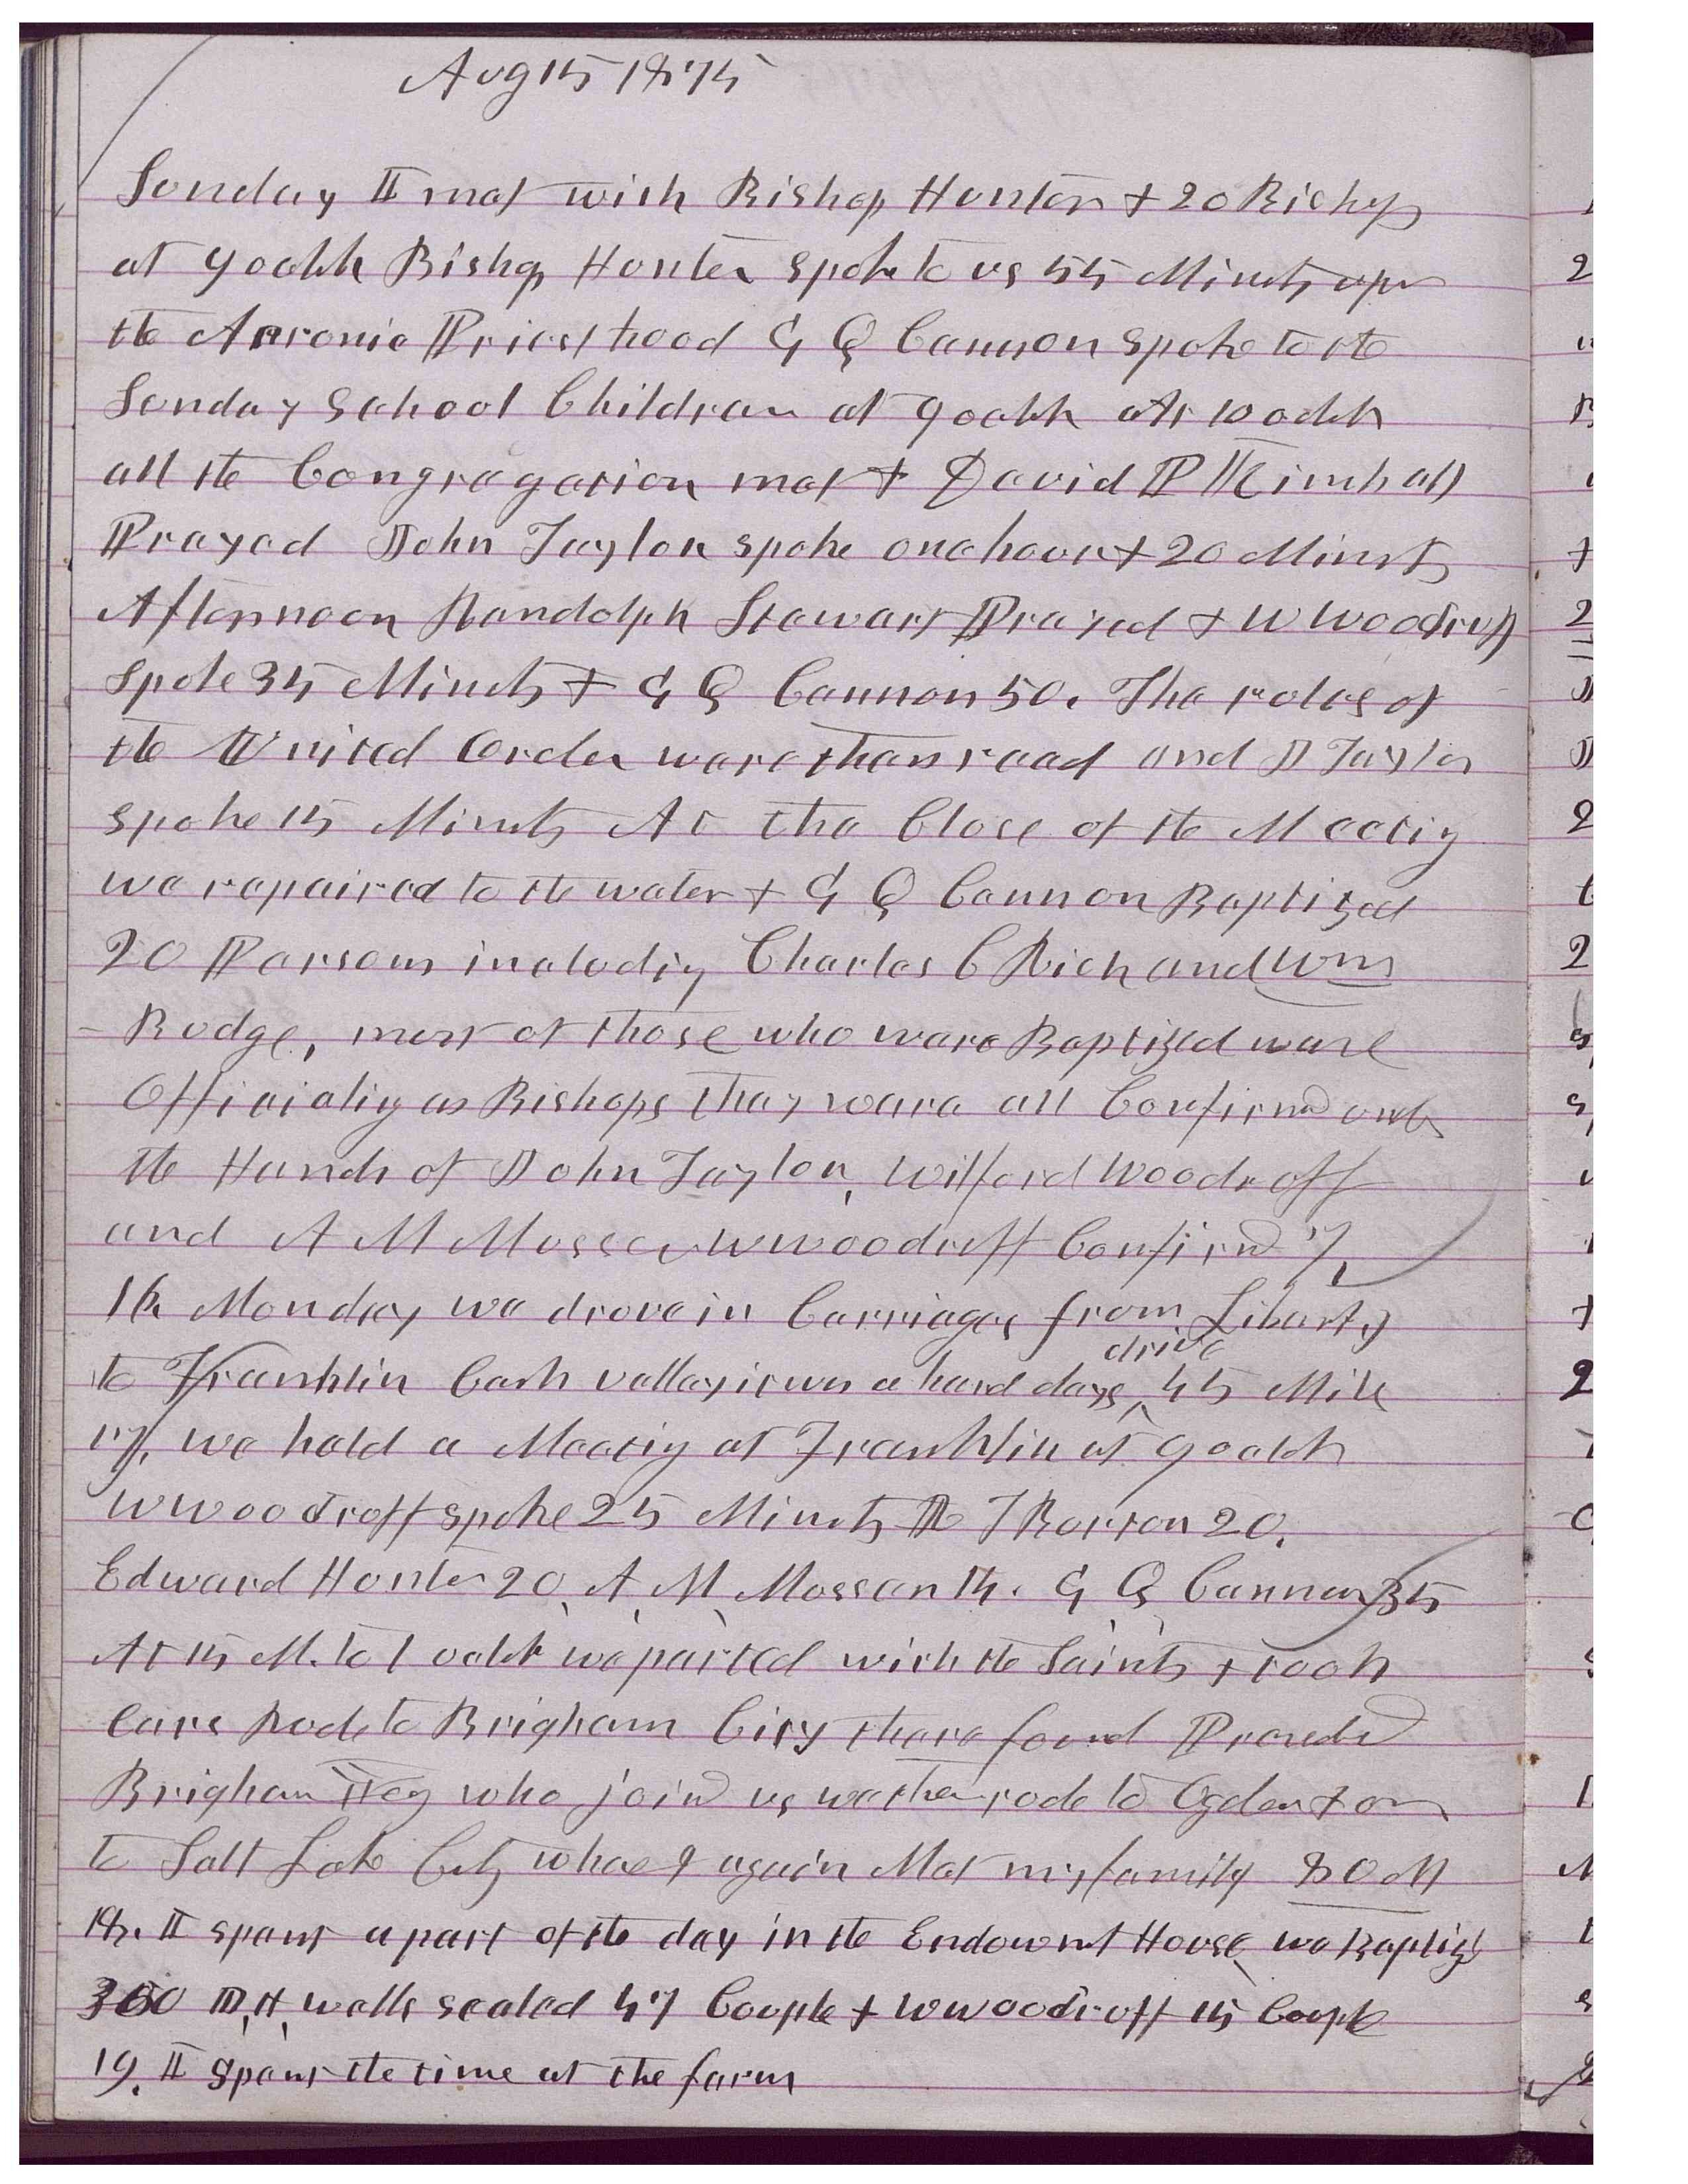 Aug 15 1875
Sunday I met with Bishop Hunter + 20 Bishops
at 9 oclok Bishop Hunter spoke to us 55 Minuts upon
the Aaronic Priesthood G Q Cannon spoke to the
Sunday School Children at 9 oclok at 10 oclok
all the Congregation met + David P Kimball
Prayed John Taylor spoke one hour + 20 Minuts
Afternoon Randolph Stewart Prayed + W Woodruff
Spoke 35 Minuts + G Q Cannon 50. The rules of
the United Order were then read and J Taylor
spoke 15 Minuts At the Close of the Meetig
we repaired to the water + G Q Cannon Baptized
20 Persons includig Charles C Rich and Wm
Budge, most of those who were Baptized were
Officiatig as Bishops they were all Confirmd under
the Hands of John Taylor, Wilford Woodruff
and A M Musser W Woodruff Confirmd 7,
16. Monday we drove in Carriages from Liberty
drive
to Franklin Cash valley it was a hard days 45 Mile
17. we held a Meetig at Franklin at 9 oclok
W Woodruff spoke 25 Minuts R T Burton 20.
Edward Hunter 20, A, M, Musser 15. G, Q, Cannon 35
At 15 M. to 1 oclok we parted with the Saints + took
Cars rode to Brigham City there found Presedt
Brigham Yog who joind us we then rode to Ogden + on
to Salt Lake City whare I again Met my family 80 M
18. I spent a part of the day in the Endowmt House we Baptizd
360 D, H, wells sealed 47 Couple + W Woodruff 15 Couple
19. I spent the time at the farm